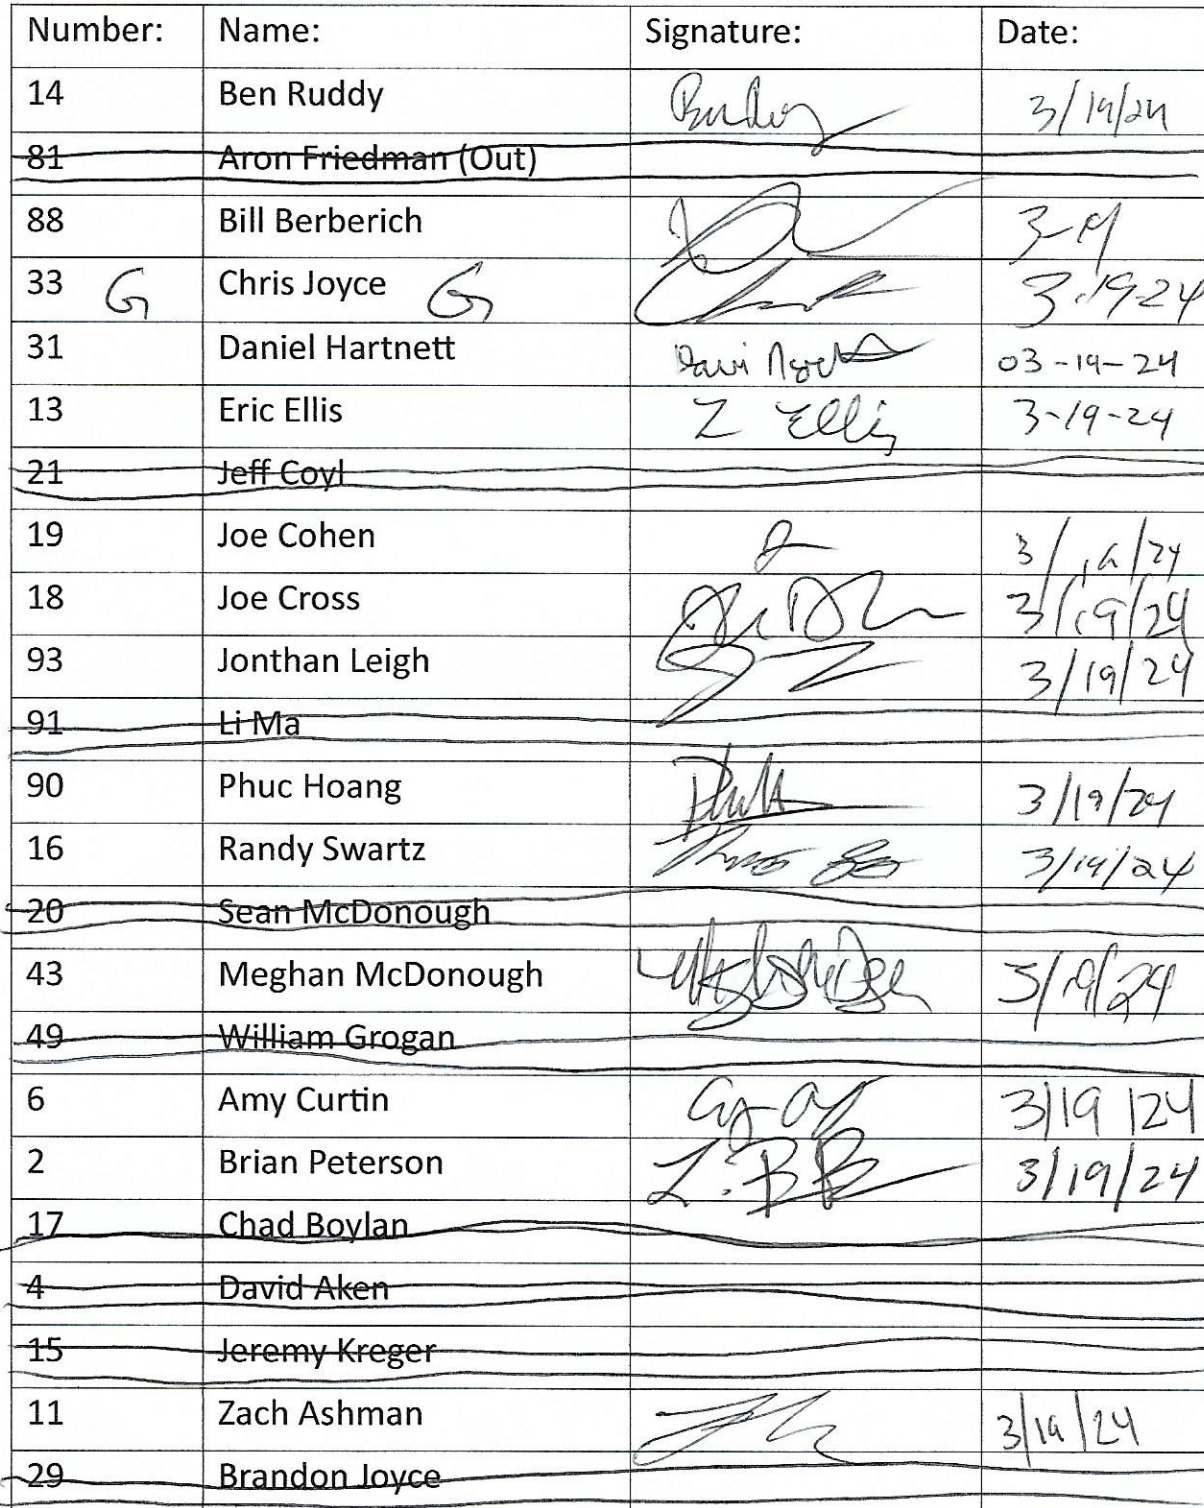 Number: Name: Signature: Date:
14 Ben Ruddy 3/19/24
81 Aron Friedman (Out)
88 Bill Berberich 3-19
33 G Chris Joyce G 3-19-24
31 Daniel Hartnett 03-19-24
13 Eric Ellis Ellis 3-19-24
21 Jeff Coyl
19 Joe Cohen 3/19/24
18 Joe Cross 3/19/24
93 Jonthan Leigh 3/19/24
91 Li Ma
90 Phuc Hoang 3/19/24
16 Randy Swartz 3/19/24
20 Sean McDonough
43 Meghan McDonough 3/19/24
49 William Grogan
6 Amy Curtin 3/19/24
2 Brian Peterson 3/19/24
17 Chad Boylan
4 David Aken
15 Jeremy Kreger
11 Zach Ashman 3/19/24
29 Brandon Joyce